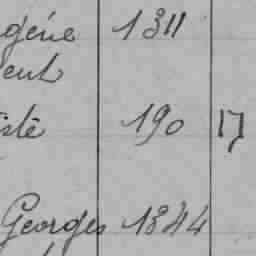 gène 1311
ent
iste 190 17
Georges 1344